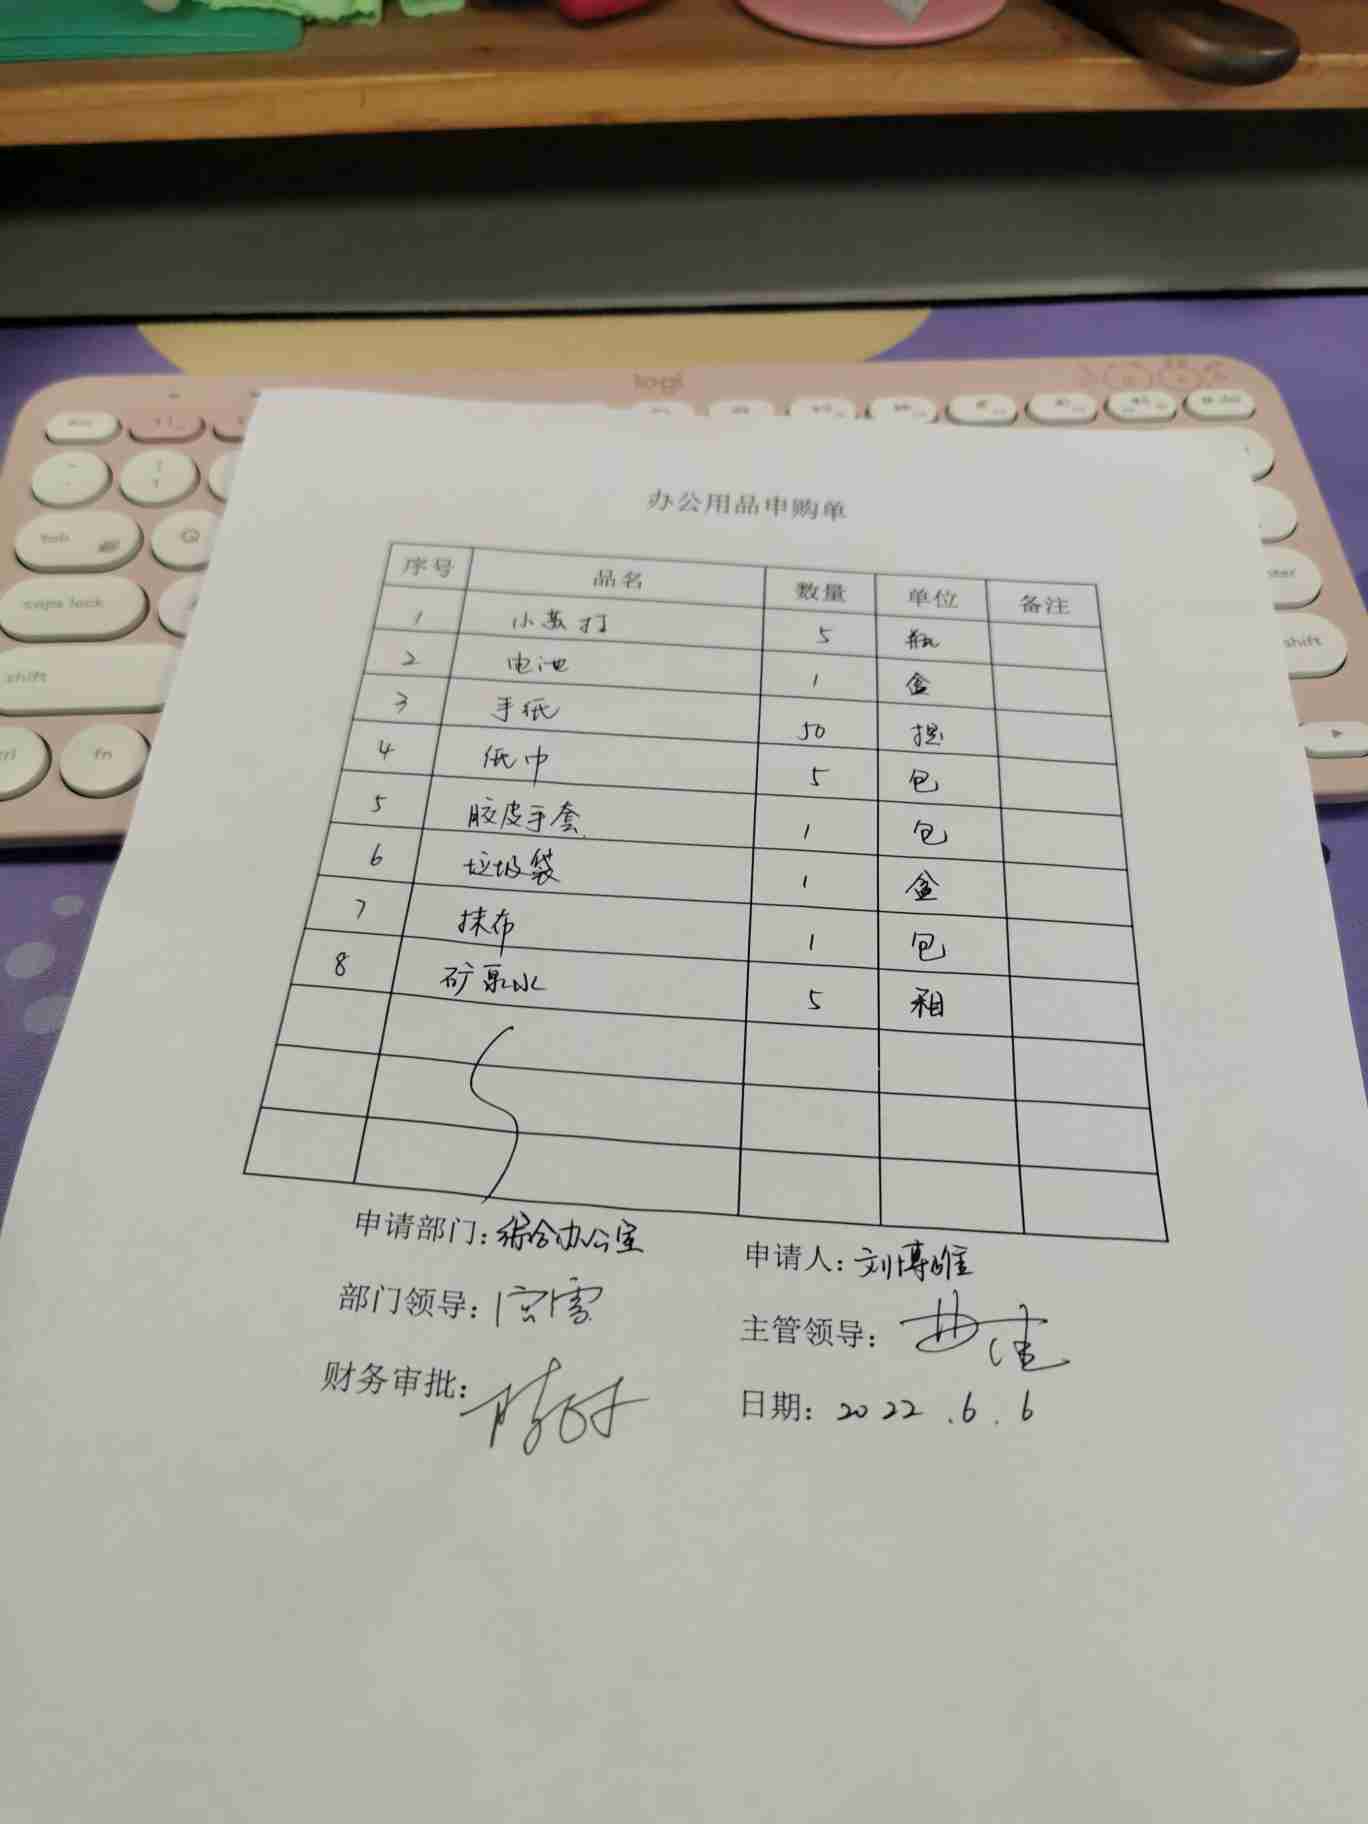 logi
tab
Q
caps lock
shift
shift
fn
办公用品申购单
序号 品名 数量 单位 备注
1 小苏打 5 瓶
2 电池 1 盒
3 手纸 50 提
4 纸巾 5 包
5 胶皮手套 1 包
6 垃圾袋 1 盒
7 抹布 1 包
8 矿泉水 5 箱
申请部门：综合办公室 申请人：刘博雅
部门领导： 主管领导：
财务审批： 日期：2022.6.6